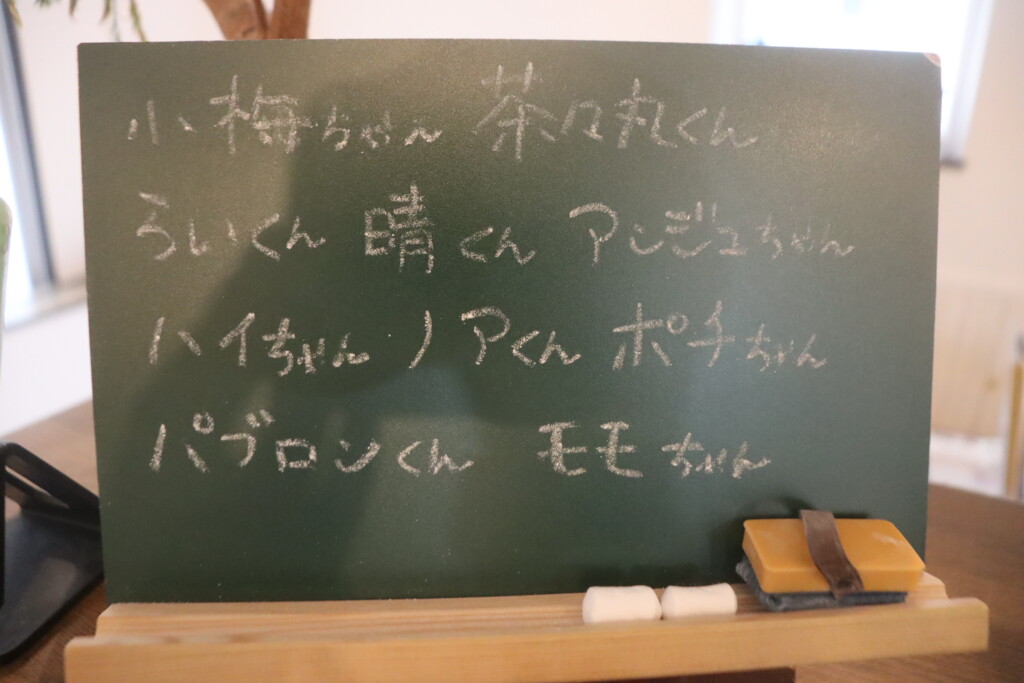 小梅ちゃん 茶々丸くん
らいくん 晴くん アンジュちゃん
ハイちゃん ノアくん ポチちゃん
パブロンくん モモちゃん